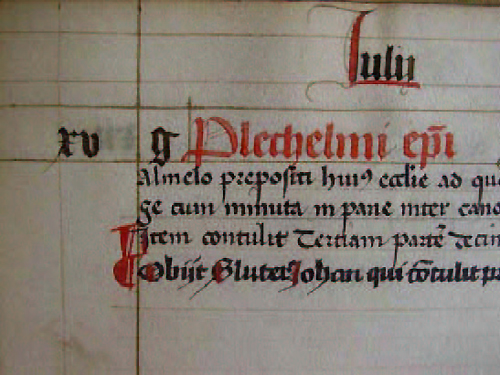 Iulij
xv g Plechelmi ep̄i
Almelo prepositi hui⁹ ecclie ad
ge cum minuta in pane inter
Item contulit Tertiam parte᷑
Obijt Sluter Johan qui co᷑tulit